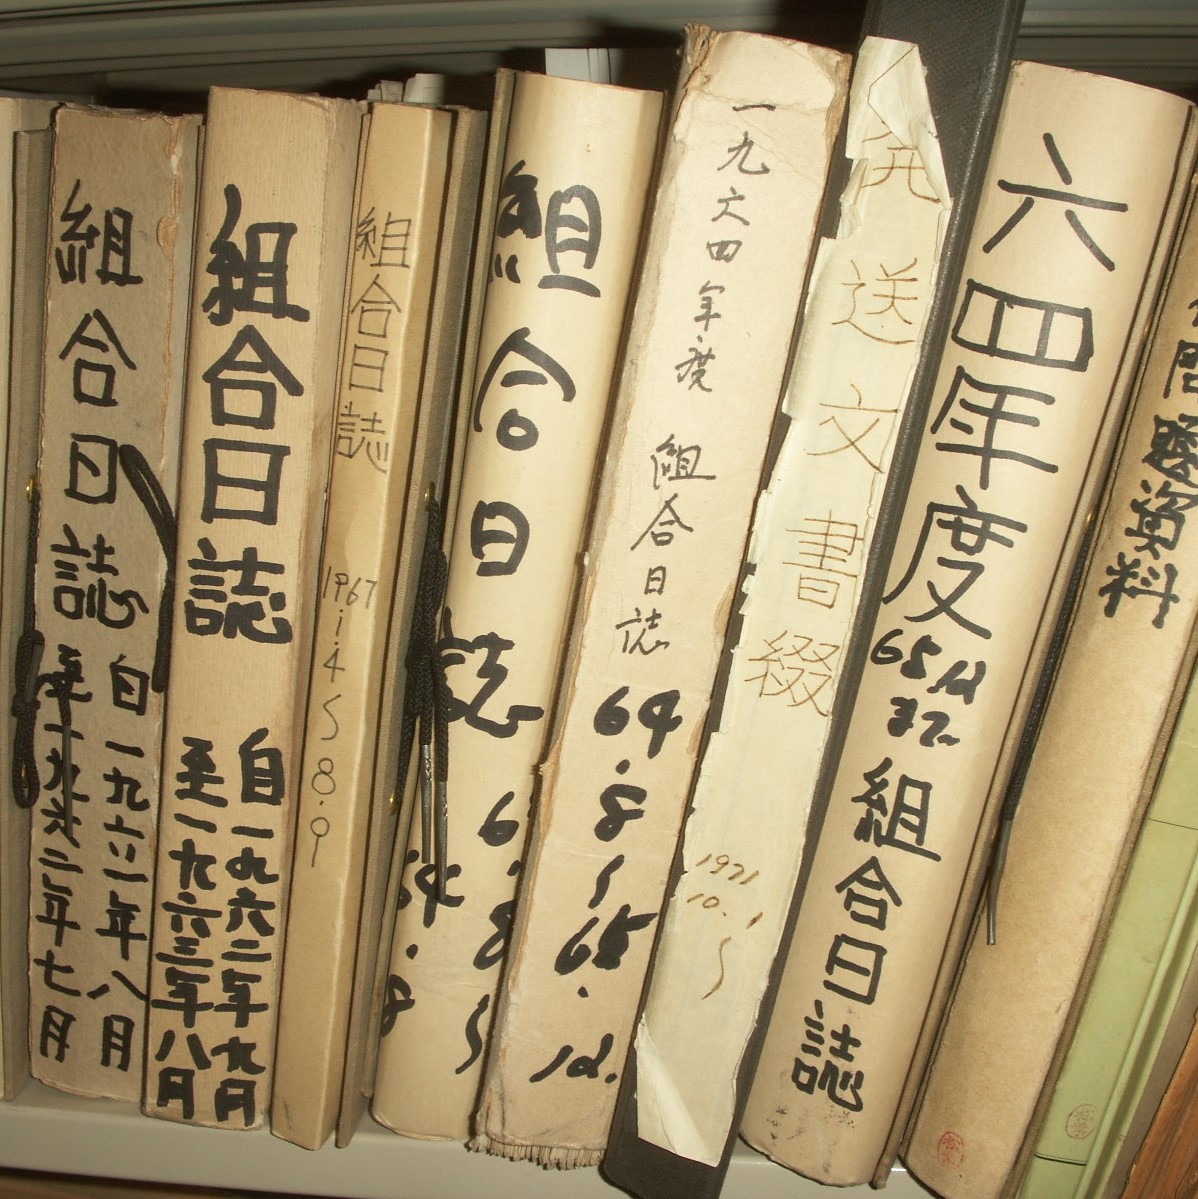 組合日誌
自一九六一年八月
至一九六二年七月
組合日誌
自一九六二年九月
至一九六三年八月
組合日誌 1967.1.4〜8.9
組合日誌
64.8
一九六四年度 組合日誌
64.8〜65.12.
発送文書綴
1971
10.1〜
六四年度
65.12
まで
組合日誌
資料